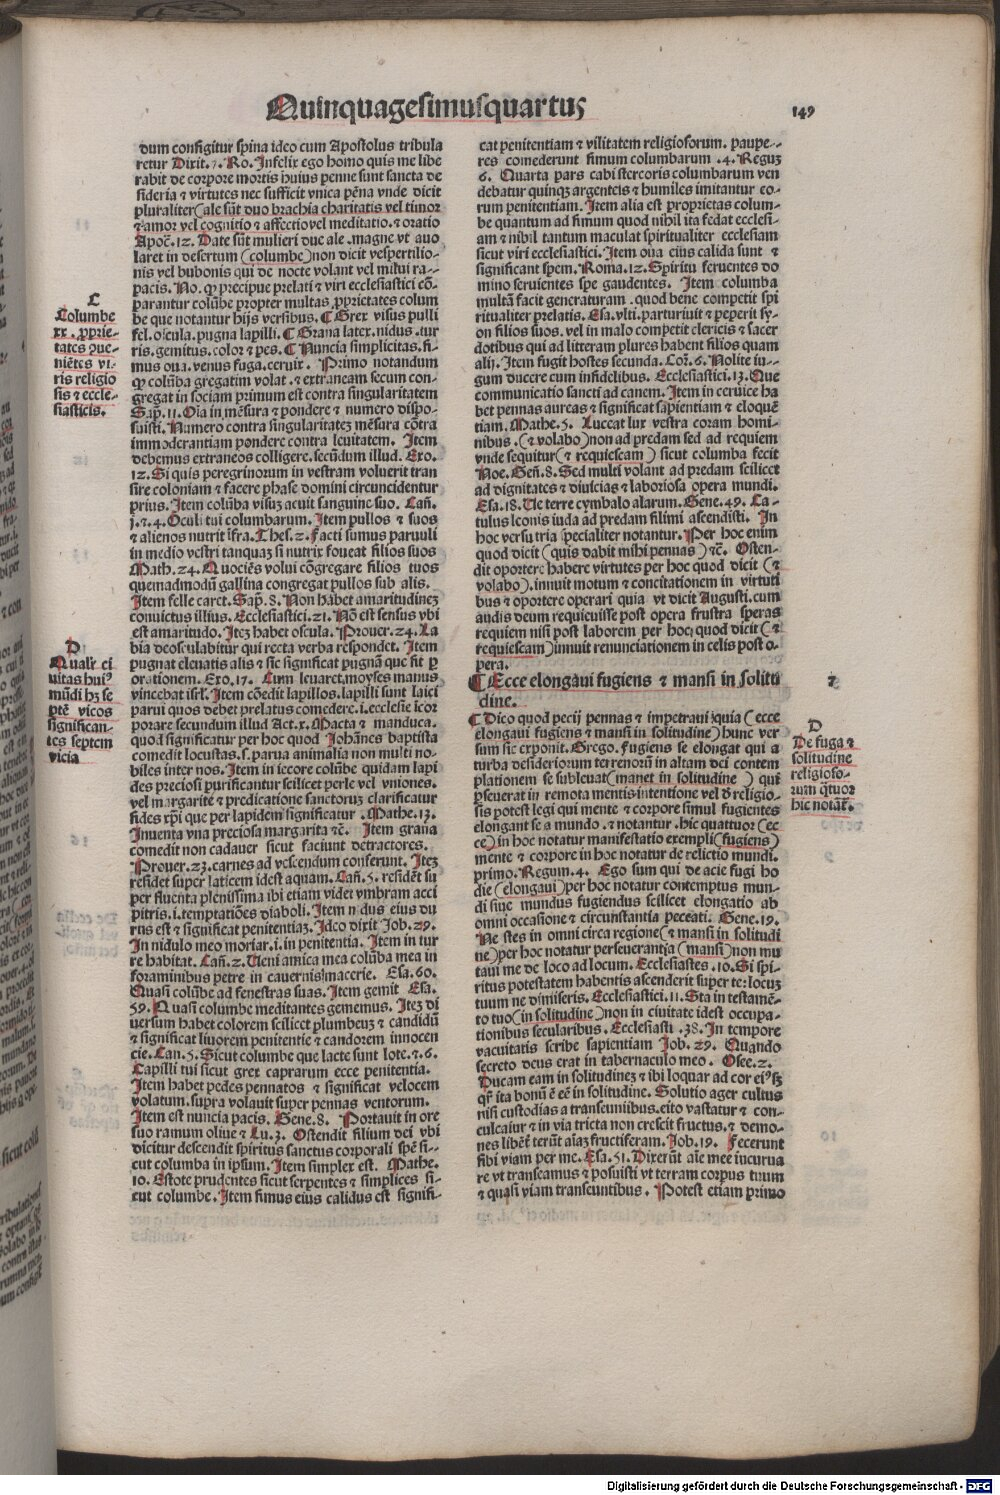 Quinquagesimusquartus
149
dum configitur spina ideo cum Apostolus tribula
retur Dixit.7.Ro.Infelix ego homo quis me libe
rabit de corpore mortis huius penne sunt sancta de
sideria ⁊ virtutes nec sufficit vnica pēna vnde dicit
pluraliter (ale sūt duo brachia charitatis vel timor
⁊ amor vel cognitio ⁊ affectio vel meditatio.⁊ oratio
Apoc̄.12. Date sūt mulieri due ale .magne vt auo
laret in desertum (columbe) non dicit vespertilio-
nis vel bubonis qui de nocte volant vel milui ra-
pacis. No. ꝙ precipue prelati ⁊ viri ecclesiastici cō-
parantur colūbe propter multas ꝓprietates colum
be que notantur hijs versibus. ¶ Grex visus pulli
fel.oscula.pugna lapilli. ¶ Grana latex.nidus.tur
ris.gemitus.color ⁊ pes. ¶ Nuncia simplicitas.fi-
mus oua.venus fuga.ceruix. Primo notandum
ꝙ colūba gregatim volat .⁊ extraneam secum con-
gregat in sociam primum est contra singularitatem
Sap̄.11. Oīa in mēsura ⁊ pondere ⁊ numero dispo-
suisti. Numero contra singularitatez mēsura cōtra
immoderantiam pondere contra leuitatem. Item
debemus extraneos colligere.secūdum illud. Exo.
12. Si quis peregrinorum in vestram voluerit tran
sire coloniam ⁊ facere phase domini circuncidentur
prius. Item colūba visuz acuit sanguine suo. Cañ.
j.⁊.4. Oculi tui columbarum. Item pullos ⁊ suos
⁊ alienos nutrit ifra. Thes.2. Facti sumus paruuli
in medio vestri tanquaz si nutrix foueat filios suos
Math.24. Quociēs volui cōgregare filios tuos
quemadmodū gallina congregat pullos sub alis.
Item felle caret. Sap̄.8. Non habet amaritudinez
conuictus illius. Ecclesiastici.21. Nō est sensus vbi
est amaritudo. Itez habet oscula. Prouer.24. La
bia deosculabitur qui recta verba respondet. Item
pugnat eleuatis alis ⁊ sic significat pugnā que fit ꝑ
orationem. Exo.17. Cum leuaret.moyses manus
vincebat isrl̄. Item cōedit lapillos.lapilli sunt laici
parui quos debet prelatus comedere.i.ecclesie icor
porare secundum illud Act.x. Macta ⁊ manduca.
quod significatur per hoc quod Johānes baptista
comedit locustas.s.parua animalia non multi no-
biles inter nos. Item in iecore colūbe quidam lapi
des preciosi purificantur scilicet perle vel vniones.
vel margarite ⁊ predicatione sanctoruz clarificatur
fides xp̄i que per lapidem significatur .Mathe.13.
Inuenta vna preciosa margarita ⁊c̄. Item grana
comedit non cadauer sicut faciunt detractores.
Prouer.23.carnes ad vescendum conferunt. Itez
residet super laticem idest aquam. Cañ.5. residēt su
per fluenta plenissima ibi etiam videt vmbram acci
pitris.i.temptatiōes diaboli. Item nidus eius du
rus est ⁊ significat penitentiaz. Ideo dixit Job.29.
In nidulo meo moriar.i.in penitentia. Item in tur
re habitat. Cañ.2. Ueni amica mea colūba mea in
foraminibus petre in cauernis macerie. Esa.60.
Quasi colūbe ad fenestras suas. Item gemit Esa.
59. Quasi columbe meditantes gememus. Itez di
uersum habet colorem scilicet plumbeuz ⁊ candidū
⁊ significat liuorem penitentie ⁊ candorem innocen
cie. Can.5. Sicut columbe que lacte sunt lote.⁊.6.
Capilli tui sicut grex caprarum ecce penitentia.
Item habet pedes pennatos ⁊ significat velocem
volatum.supra volauit super pennas ventorum.
Item est nuncia pacis. Gene.8. Portauit in ore
suo ramum oliue ⁊ Lu.3. Ostendit filium dei vbi
dicitur descendit spiritus sanctus corporali spē si-
cut columba in ipsum. Item simplex est. Mathe.
10. Estote prudentes sicut serpentes ⁊ simplices si-
cut columbe. Item fimus eius calidus est signifi-
C
Columbe
xx. ꝓprie-
tates ꝯue-
niētes vi-
ris religio
sis ⁊ eccle-
siasticis.
D
Qualr̄ ci
uitas huiꝰ
mūdi hꝫ se
ptē vicos
significan-
tes septem
vicia
cat penitentiam ⁊ vilitatem religiosorum. paupe-
res comederunt fimum columbarum .4. Reguz
6. Quarta pars cabi stercoris columbarum ven
debatur quinqꝫ argenteis ⁊ humiles imitantur eo-
rum penitentiam. Item alia est proprietas colum-
be quantum ad fimum quod nihil ita fedat ecclesi-
am ⁊ nihil tantum maculat spiritualiter ecclesiam
sicut viri ecclesiastici. Item oua eius calida sunt ⁊
significant spem. Roma.12. Spiritu feruentes do
mino seruientes spe gaudentes. Item columba
multā facit generaturam .quod bene competit spi
ritualiter prelatis. Esa.vlti.parturiuit ⁊ peperit sy-
on filios suos.vel in malo competit clericis ⁊ sacer
dotibus qui ad litteram plures habent filios quam
alij. Item fugit hostes secunda. Cor̄.6. Nolite iu-
gum ducere cum infidelibus. Ecclesiastici.13. Que
communicatio sancti ad canem. Item in ceruice ha
bet pennas aureas ⁊ significat sapientiam ⁊ eloquē
tiam. Mathe.5. Luceat lux vestra coram homi-
nibus .(⁊ volabo) non ad predam sed ad requiem
vnde sequitur (⁊ requiescam) sicut columba fecit
Noe. Geñ.8. Sed multi volant ad predam scilicet
ad dignitates ⁊ diuicias ⁊ laboriosa opera mundi.
Esa.18. Ue terre cymbalo alarum. Gene.49. Ca-
tulus leonis iuda ad predam filimi ascendisti. In
hoc versu tria specialiter notantur. Per hoc enim
quod dicit (quis dabit mihi pennas) ⁊c̄. Osten-
dit oportere habere virtutes per hoc quod dicit (⁊
volabo).innuit motum ⁊ concitationem in virtuti
bus ⁊ oportere operari quia vt dicit Augusti.cum
audis deum requieuisse post opera frustra speras
requiem nisi post laborem per hoc quod dicit (⁊
requiescam) innuit renunciationem in celis post o-
pera.
¶ Ecce elongaui fugiens ⁊ mansi in solitu
dine.
¶ Dico quod pecij pennas ⁊ impetraui quia (ecce
elongaui fugiens ⁊ mansi in solitudine) hunc ver
sum sic exponit. Grego. Fugiens se elongat qui a
turba desideriorum terrenorū in altam dei contem
plationem se subleuat (manet in solitudine ) qui
ꝑseuerat in remota mentis intentione vel ð religio-
sis potest legi qui mente ⁊ corpore simul fugientes
elongant se a mundo .⁊ notantur .hic quattuor (ec
ce) in hoc notatur manifestatio exempli (fugiens)
mente ⁊ corpore in hoc notatur de relictio mundi.
primo. Regum.4. Ego sum qui de acie fugi ho
die (elongaui) per hoc notatur contemptus mun-
di siue mundus fugiendus scilicet elongatio ab
omni occasione ⁊ circumstantia peccati. Gene.19.
Ne stes in omni circa regione (⁊ mansi in solitudi
ne) per hoc notatur perseuerantia (mansi) non mu
taui me de loco ad locum. Ecclesiastes.10. Si spi-
ritus potestatem habentis ascenderit super te:locuz
tuum ne dimiseris. Ecclesiastici.11. Sta in testamē-
to tuo (in solitudine) non in ciuitate idest occupa-
tionibus secularibus. Ecclesiasti.38. In tempore
vacuitatis scribe sapientiam Job.29. Quando
secreto deus erat in tabernaculo meo. Osee.2.
Ducam eam in solitudinez ⁊ ibi loquar ad cor eiꝰ sꝫ
qr̄ ita bonū ē eē in solitudine. Solutio ager cultus
nisi custodias a transeuntibus.cito vastatur ⁊ con-
culcatur ⁊ in via tricta non crescit fructus.⁊ demo-
nes libēt̄ terūt aīaz fructiferam. Job.19. Fecerunt
sibi viam per me. Esa.51. Dixerūt aīe mee incurua
re vt transeamus ⁊ posuisti vt terram corpus tuum
⁊ quasi viam transeuntibus. Potest etiam primo
2
D
De fuga ⁊
solitudine
religioso-
rum q̄tuor
hic notant̄.
Digitalisierung gefördert durch die Deutsche Forschungsgemeinschaft - DFG